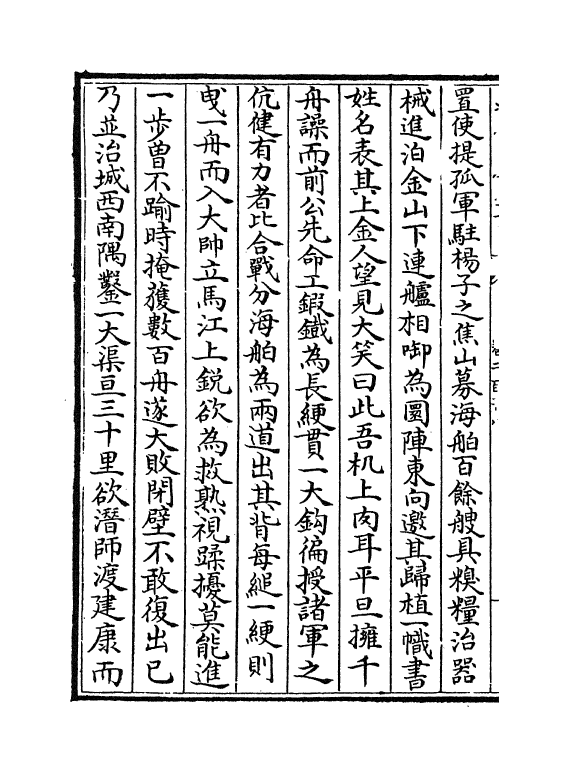 置使提孤軍駐楊子之焦山募海舶百餘艘具糗糧治器
械進泊金山下連艫相啣為圜陣東向邀其歸植一幟書
姓名表其上金人望見大笑曰此吾机上肉耳平旦擁千
舟譟而前公先命工鍜鐵為長綆貫一大鈎徧授諸軍之
伉健有力者比合戰分海舶為兩道出其背每縋一綆則
曵一舟而入大帥立馬江上鋭欲為救熟視蹂擾莫能進
一步曾不踰時掩獲數百舟遂大敗閉壁不敢復出已
乃並治城西南隅鑿一大渠亘三十里欲潛師渡建康而